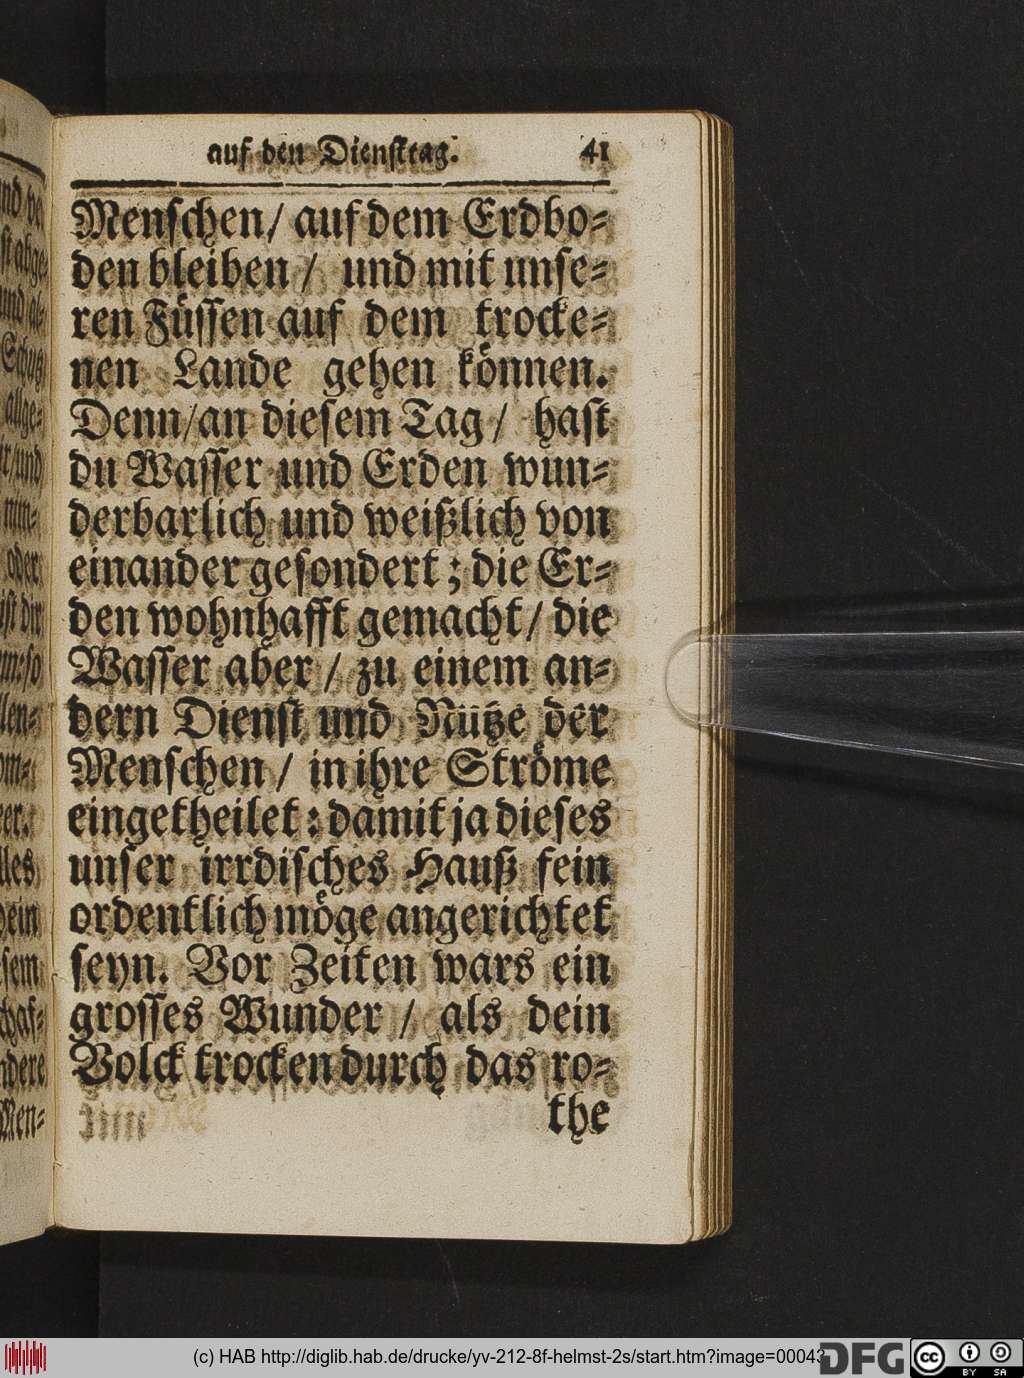 auf den Dienstag. 41
Menschen/ auf dem Erdbo-
den bleiben/ und mit unse-
ren Füssen auf dem trocke-
nen Lande gehen können.
Denn/an diesem Tag/ hast
du Wasser und Erden wun-
derbarlich und weißlich von
einander gesondert; die Er-
den wohnhafft gemacht/ die
Wasser aber/ zu einem an-
dern Dienst und Nütze der
Menschen/ in ihre Ströme
eingetheilet: damit ja dieses
unser irrdisches Hauß fein
ordentlich möge angerichtet
seyn. Vor Zeiten wars ein
grosses Wunder/ als dein
Volck trocken durch das ro-
the
(c) HAB http://diglib.hab.de/drucke/yv-212-8f-helmst-2s/start.htm?image=00043
DFG
cc
BY SA